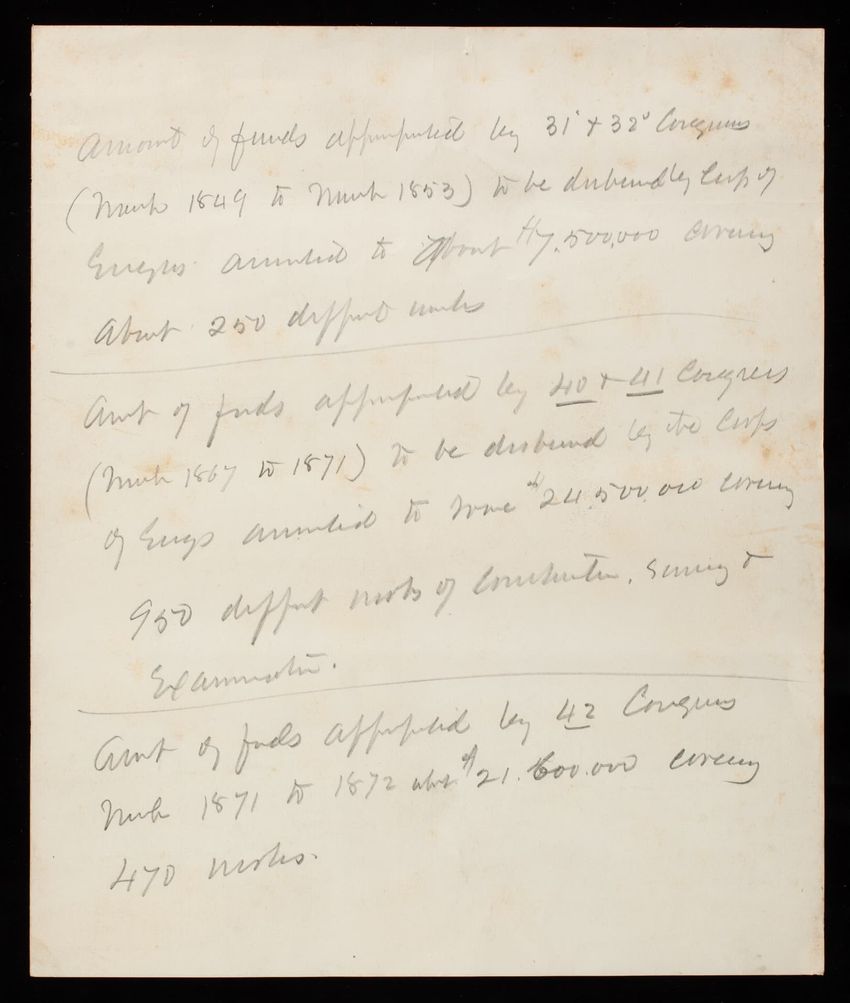 Amount of funds appropriated by 31st & 32d Congress
(March 1849 to March 1853) to be disbursed by Corps of
Engrs. amounted to about $7,500,000 covering
about 250 different works
Amt of funds appropriated by 40 & 41 Congress
(March 1867 to 1871) to be disbursed by the Corps
of Engs amounted to $24,500,000 covering
950 diffent works of Construction, Survey &
Examination.
Amt of funds appropriated by 42 Congress
March 1871 to 1872 abt $21.600.000 covering
470 works.